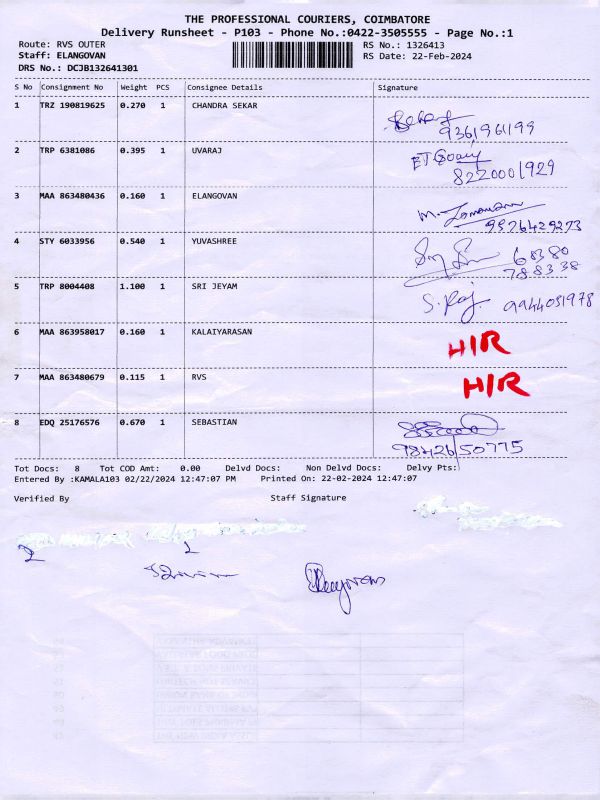 THE PROFESSIONAL COURIERS, COIMBATORE
Delivery Runsheet - P103 - Phone No.:0422-3505555 - Page No.:1
Route: RVS OUTER RS No.: 1326413
Staff: ELANGOVAN RS Date: 22-Feb-2024
DRS No.: DCJB132641301
S No Consignment No Weight PCS Consignee Details Signature
1 TRZ 190819625 0.270 1 CHANDRA SEKAR
9361961199
2 TRP 6381086 0.395 1 UVARAJ
8220001929
3 MAA 863480436 0.160 1 ELANGOVAN
9976429273
4 STY 6033956 0.540 1 YUVASHREE
68380
78838
5 TRP 8004408 1.100 1 SRI JEYAM S. Raj. 9944051978
6 MAA 863958017 0.160 1 KALAIYARASAN H/R
7 MAA 863480679 0.115 1 RVS H/R
8 EDQ 25176576 0.670 1 SEBASTIAN
9842650775
Tot Docs: 8 Tot COD Amt: 0.00 Delvd Docs: Non Delvd Docs: Delvy Pts:
Entered By :KAMALA103 02/22/2024 12:47:07 PM Printed On: 22-02-2024 12:47:07
Verified By Staff Signature